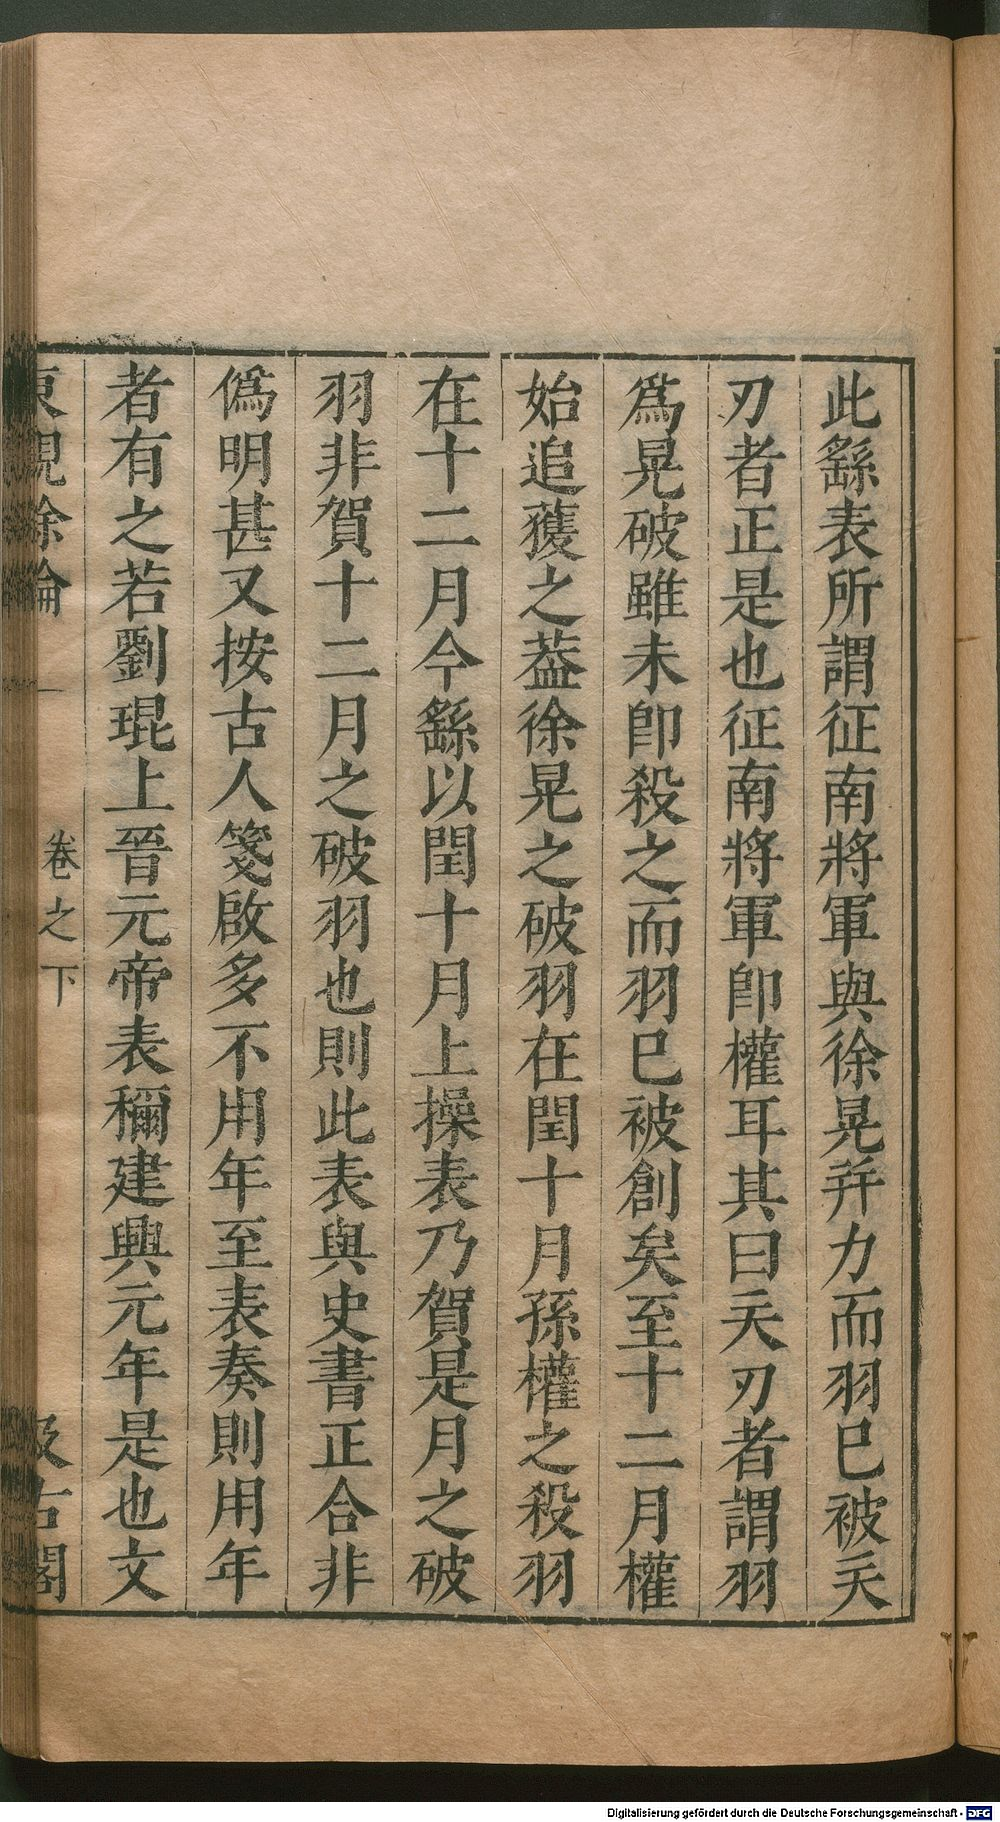 此繇表所謂征南將軍與徐晃并力而羽已被矢
刃者正是也征南將軍卽權耳其曰矢刃者謂羽
爲晃破雖未卽殺之而羽已被創矣至十二月權
始追獲之葢徐晃之破羽在閏十月孫權之殺羽
在十二月今繇以閏十月上操表乃賀是月之破
羽非賀十二月之破羽也則此表與史書正合非
僞明甚又按古人箋啟多不用年至表奏則用年
者有之若劉琨上晉元帝表稱建興元年是也文
東觀餘論 卷之下 汲古閣
Digitalisierung gefördert durch die Deutsche Forschungsgemeinschaft - DFG